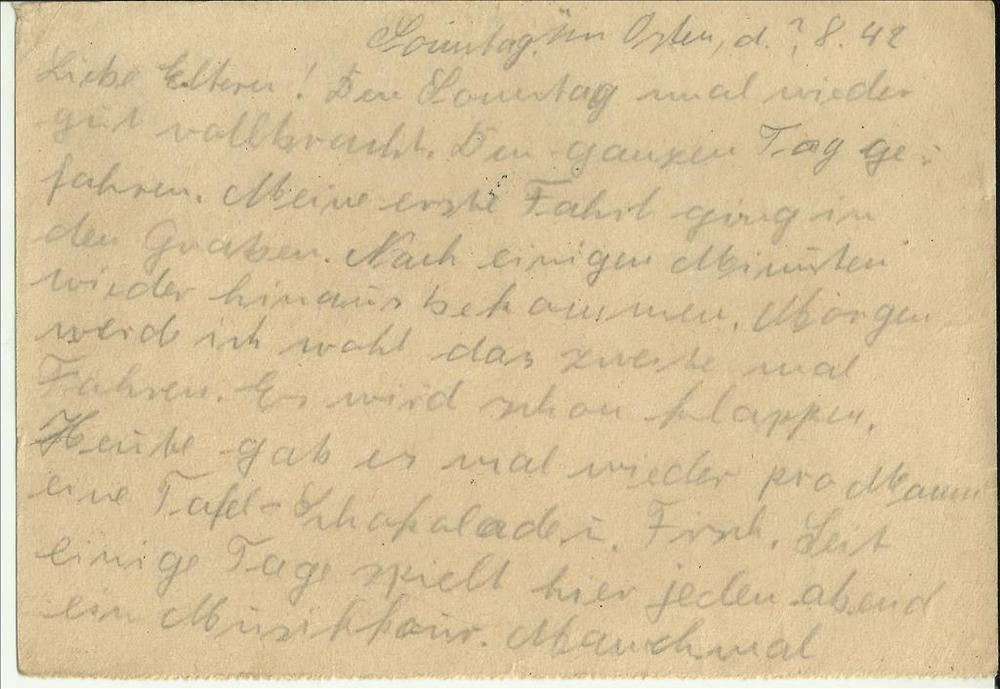 Sonntag. Im Osten, d. ? 8. 42
Liebe Eltern! Den Sonntag mal wieder
gut vollbracht. Den ganzen Tag ge-
fahren. Meine erste Fahrt ging in
den Graben. Nach einigen Minuten
wieder hinaus bekommen. Morgen
werde ich wohl das zweite mal
Fahren. Es wird schon klappen.
Heute gab es mal wieder pro Mann
eine Tafel-Schokolade u. Frsch. Seit
einige Tage spielt hier jeden abend
ein Musikkour. Manchmal